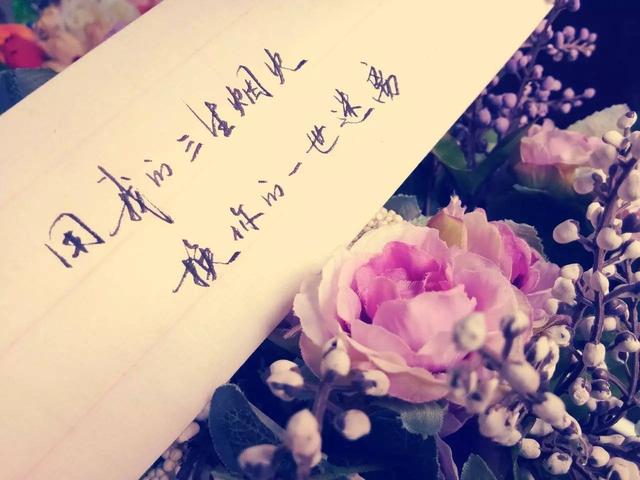 用我的三生烟火
换你的一世迷离